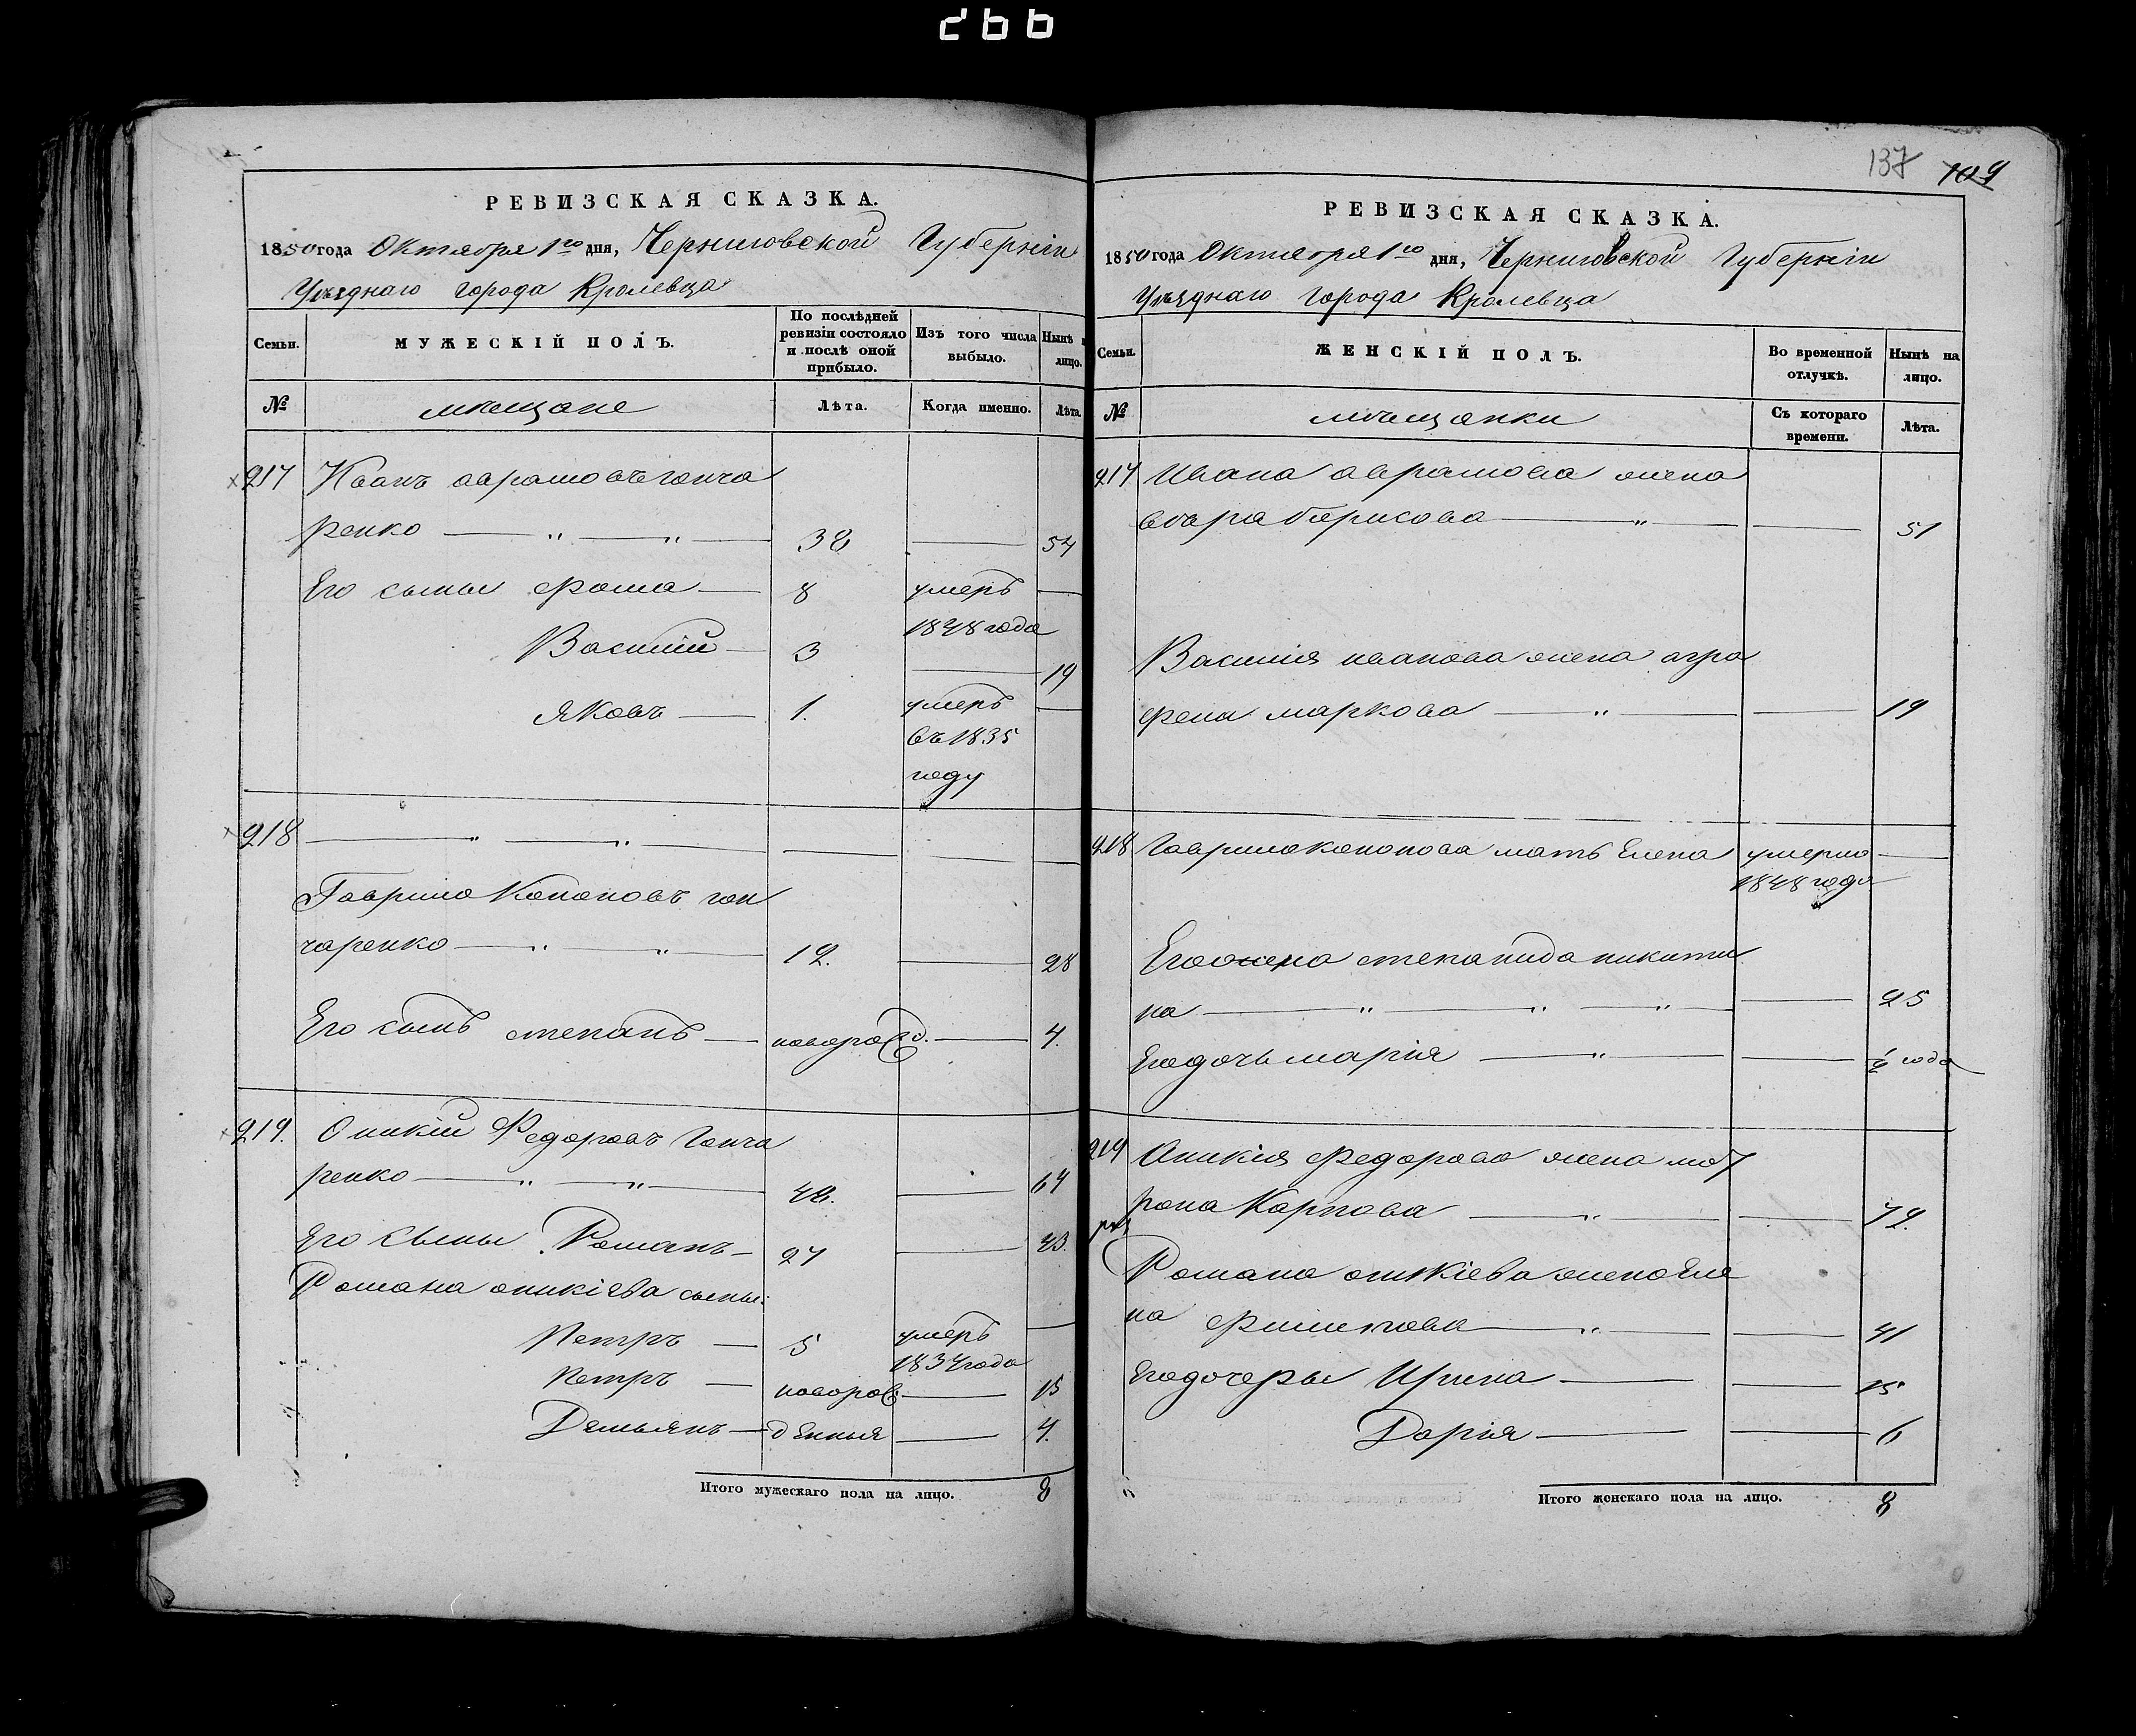 266
РЕВИЗСКАЯ СКАЗКА.
1850 года Октября 1го дня, Черниговской Губерніи
Уѣзднаго города Кролевца
Семьи.
МУЖЕСКІЙ ПОЛЪ.
По послѣдней ревизіи состояло и послѣ оной прибыло.
Изъ того числа выбыло.
Нынѣ на лицо.
№
мѣщане
Лѣта.
Когда именно.
Лѣта.
217 Иванъ аврамовъ гонча
ренко — " — " — 38 — 54
Его сыны Фома — 8 умеръ —
1848 года
Василій — 3 — 19
Яковъ — 1. умеръ —
въ 1835
году
218 — " — " — — — —
Гаврило Кононовъ гон
чаренко — " — " — 12. — 28
Его сынъ степанъ — новорожд. — 4.
219. Оникій Федоровъ Гонча
ренко — " — " — 48. — 64
Его Сыны Романъ — 27 — 43.
Романа оникіева сыны:
Петръ — 5 умеръ —
1834 года
Петръ — новорож — 15
Демьянъ — денныя — 4.
Итого мужескаго пола на лицо. 8
137 109
РЕВИЗСКАЯ СКАЗКА.
1850 года Октября 1го дня, Черниговской Губерніи
Уѣзднаго города Кролевца
Семьи.
ЖЕНСКІЙ ПОЛЪ.
Во временной отлучкѣ.
Нынѣ на лицо.
№
мѣщанки
Съ котораго времени.
Лѣта.
217 Ивана аврамова жена
вара борисова — " — — 51
Василія иванова жена агра
фена маркова — " — — 19
218 Гаврила кононова мать Елена умерла —
1848 года
Его жена степанида никити
на — " — " — " — — 25
Его дочь марія — " — — ½ года
219 Оникія федорова жена мот
рона Карпова — " — — 72.
Романа оникіева жена Еле
на Филипова — " — — 41
Его дочеры Ирина — — 15
Дарія — — 6
Итого женскаго пола на лицо. 8